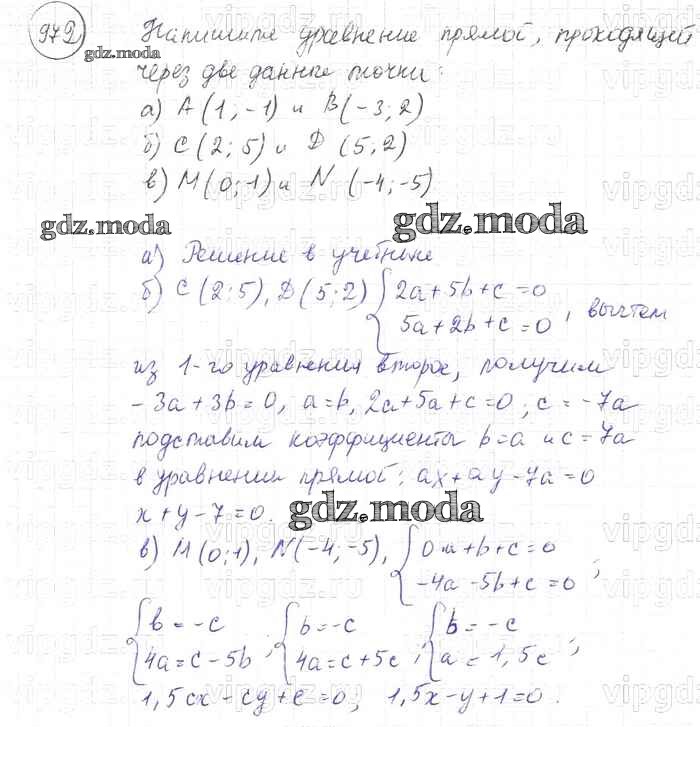 972
gdz.moda
Напишите уравнение прямой, проходящей
через две данные точки:
а) A (1; -1) и B(-3; 2)
б) C (2; 5) и D (5; 2)
в) M (0; 1) и N (-4; -5)
gdz.moda
gdz.moda
а) Решение в учебнике
б) C (2; 5), D (5; 2) { 2a + 5b + c = 0
5a + 2b + c = 0 , вычтем
из 1-го уравнения второе, получим
-3a + 3b = 0, a = b, 2a + 5a + c = 0; c = -7a
подставим коэффициенты b = a и c = 7a
в уравнении прямой: ax + ay - 7a = 0
x + y - 7 = 0.
gdz.moda
в) M (0; 1), N (-4; -5), { 0a + b + c = 0
-4a - 5b + c = 0 ;
{ b = -c ; { b = -c ; { b = -c ;
4a = c - 5b 4a = c + 5c a = 1,5c
1,5cx - cy + c = 0; 1,5x - y + 1 = 0.
vipgdz.ru